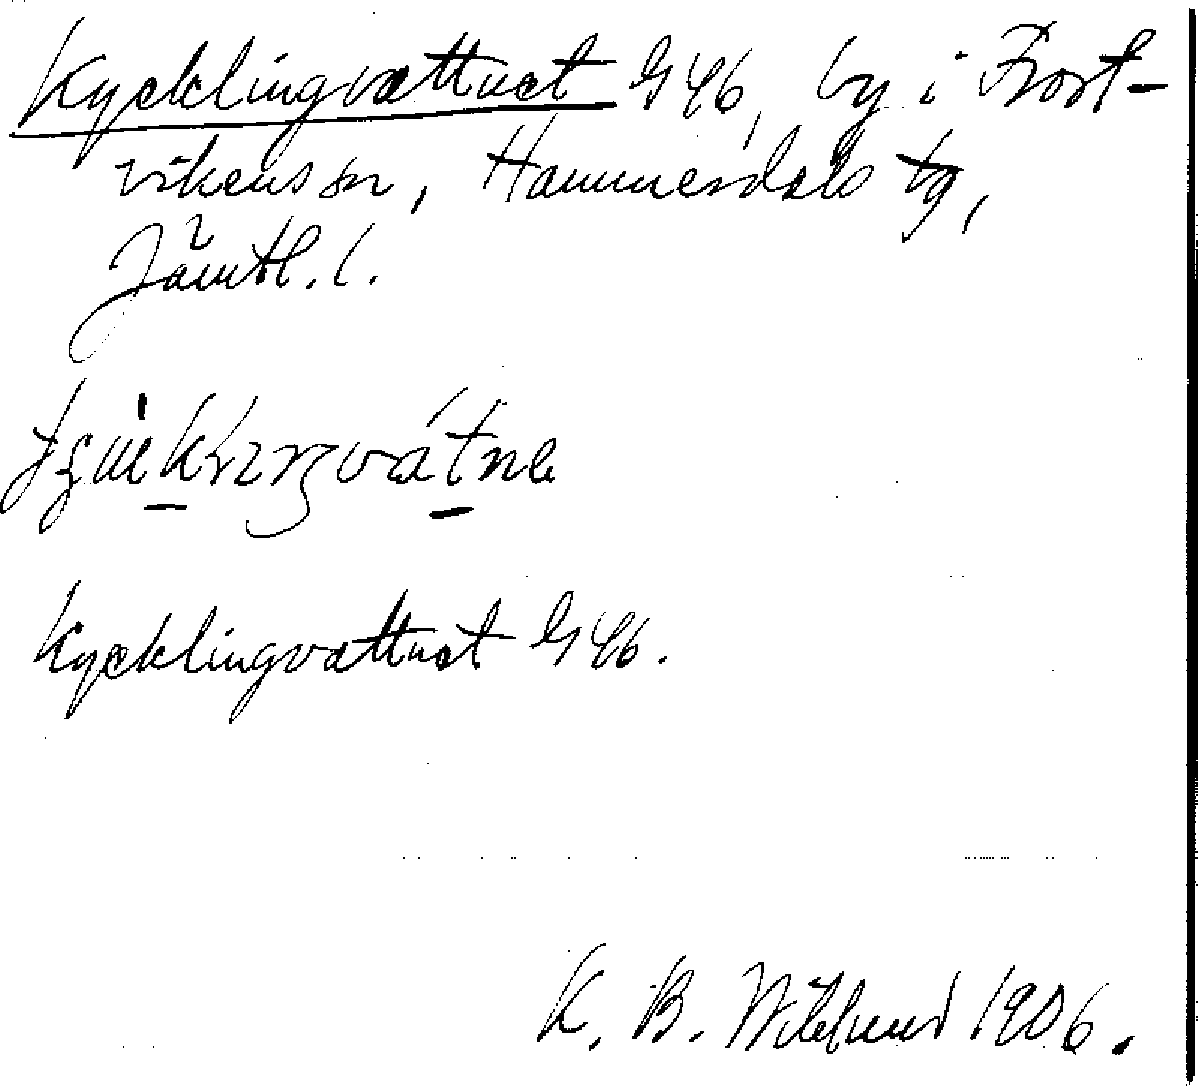 Kycklingvattnet G46, by i Frost-
vikens sn, Hammerdals tg,
Jämtl. l.
Kycklingvattnet G46.
K. B. Wiklund 1906.